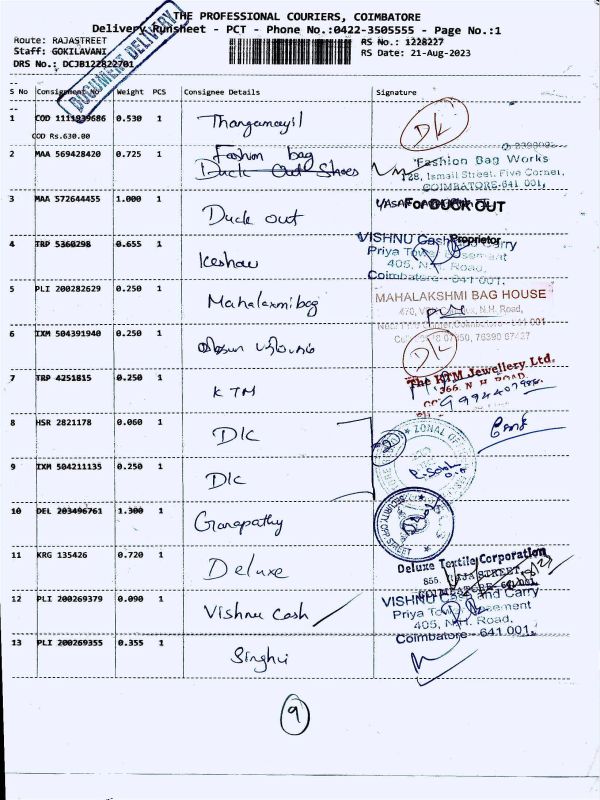 THE PROFESSIONAL COURIERS, COIMBATORE
Delivery Runsheet - PCT - Phone No.:0422-3505555 - Page No.:1
Route: RAJASTREET
Staff: GOKILAVANI
DRS No.: DCJB122822701
RS No.: 1228227
RS Date: 21-Aug-2023
DOCUMENT DELIVERY
S No Consignment No Weight PCS Consignee Details Signature
1 COD 1111939686 0.530 1 Thangamayil DK
COD Rs.630.00
2 MAA 569428420 0.725 1 Fashion bag
Duck Out Shoes
Fashion Bag Works
128, Ismail Street, Five Corner,
COIMBATORE-641 001.
3 MAA 572644455 1.000 1 Duck out
For DUCK OUT
Proprietor
4 TRP 5360298 0.655 1 Keshav
VISHNU Cash and Carry
Priya Tower Basement
405, N.H. Road,
Coimbatore - 641 001.
5 PLI 200282629 0.250 1 Mahalaxmi bag
MAHALAKSHMI BAG HOUSE
470, N.H. Road,
6 IXM 504391940 0.250 1
DK
7 TRP 4251815 0.250 1 KTM
The KTM Jewellery Ltd.
366, N H ROAD,
8 HSR 2821178 0.060 1 DK
ZONAL
9 IXM 504211135 0.250 1 DK
10 DEL 203496761 1.300 1 Ganapathy
SECURITY OFF
STREET
11 KRG 135426 0.720 1 Deluxe
Deluxe Textile Corporation
RAJA STREET,
COIMBATORE - 641 001.
12 PLI 200269379 0.090 1 Vishnu Cash
VISHNU Cash and Carry
Priya Tower Basement
405, N.H. Road,
Coimbatore - 641 001.
13 PLI 200269355 0.355 1 Singhvi
9